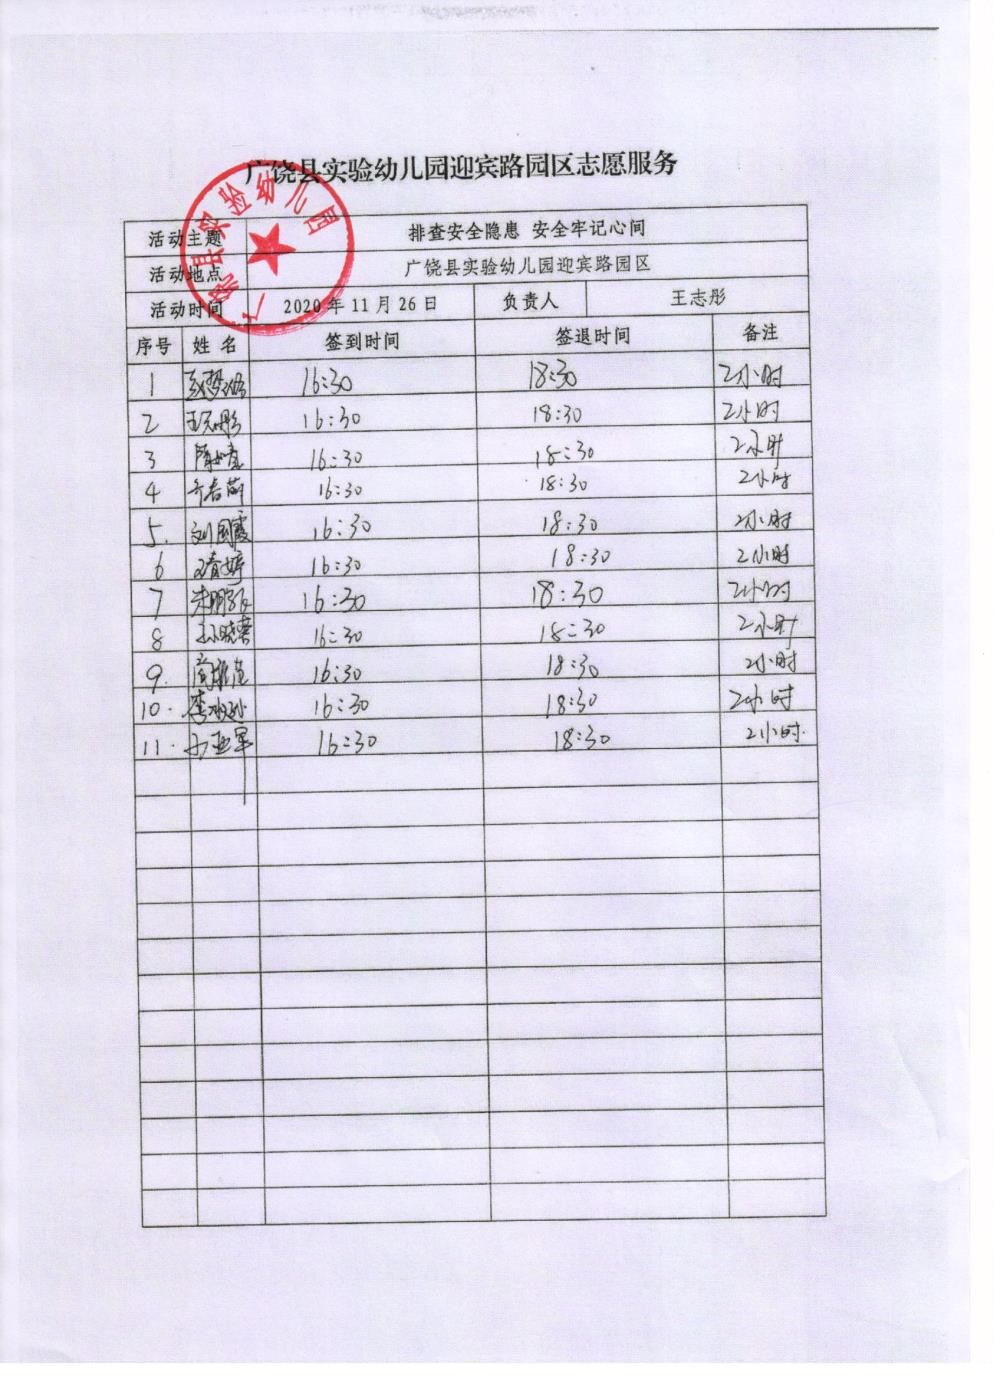 广饶县实验幼儿园迎宾路园区志愿服务
广饶县实验幼儿园
活动主题 排查安全隐患 安全牢记心间
活动地点 广饶县实验幼儿园迎宾路园区
活动时间 2020 年 11 月 26 日 负责人 王志彤
序号 姓 名 签到时间 签退时间 备注
1 16:30 18:30 2小时
2 王志彤 16:30 18:30 2小时
3 16:30 18:30 2小时
4 16:30 18:30 2小时
5. 刘国霞 16:30 18:30 2小时
6 16:30 18:30 2小时
7 16:30 18:30 2小时
8 16:30 18:30 2小时
9. 16:30 18:30 2小时
10. 16:30 18:30 2小时
11. 16:30 18:30 2小时.